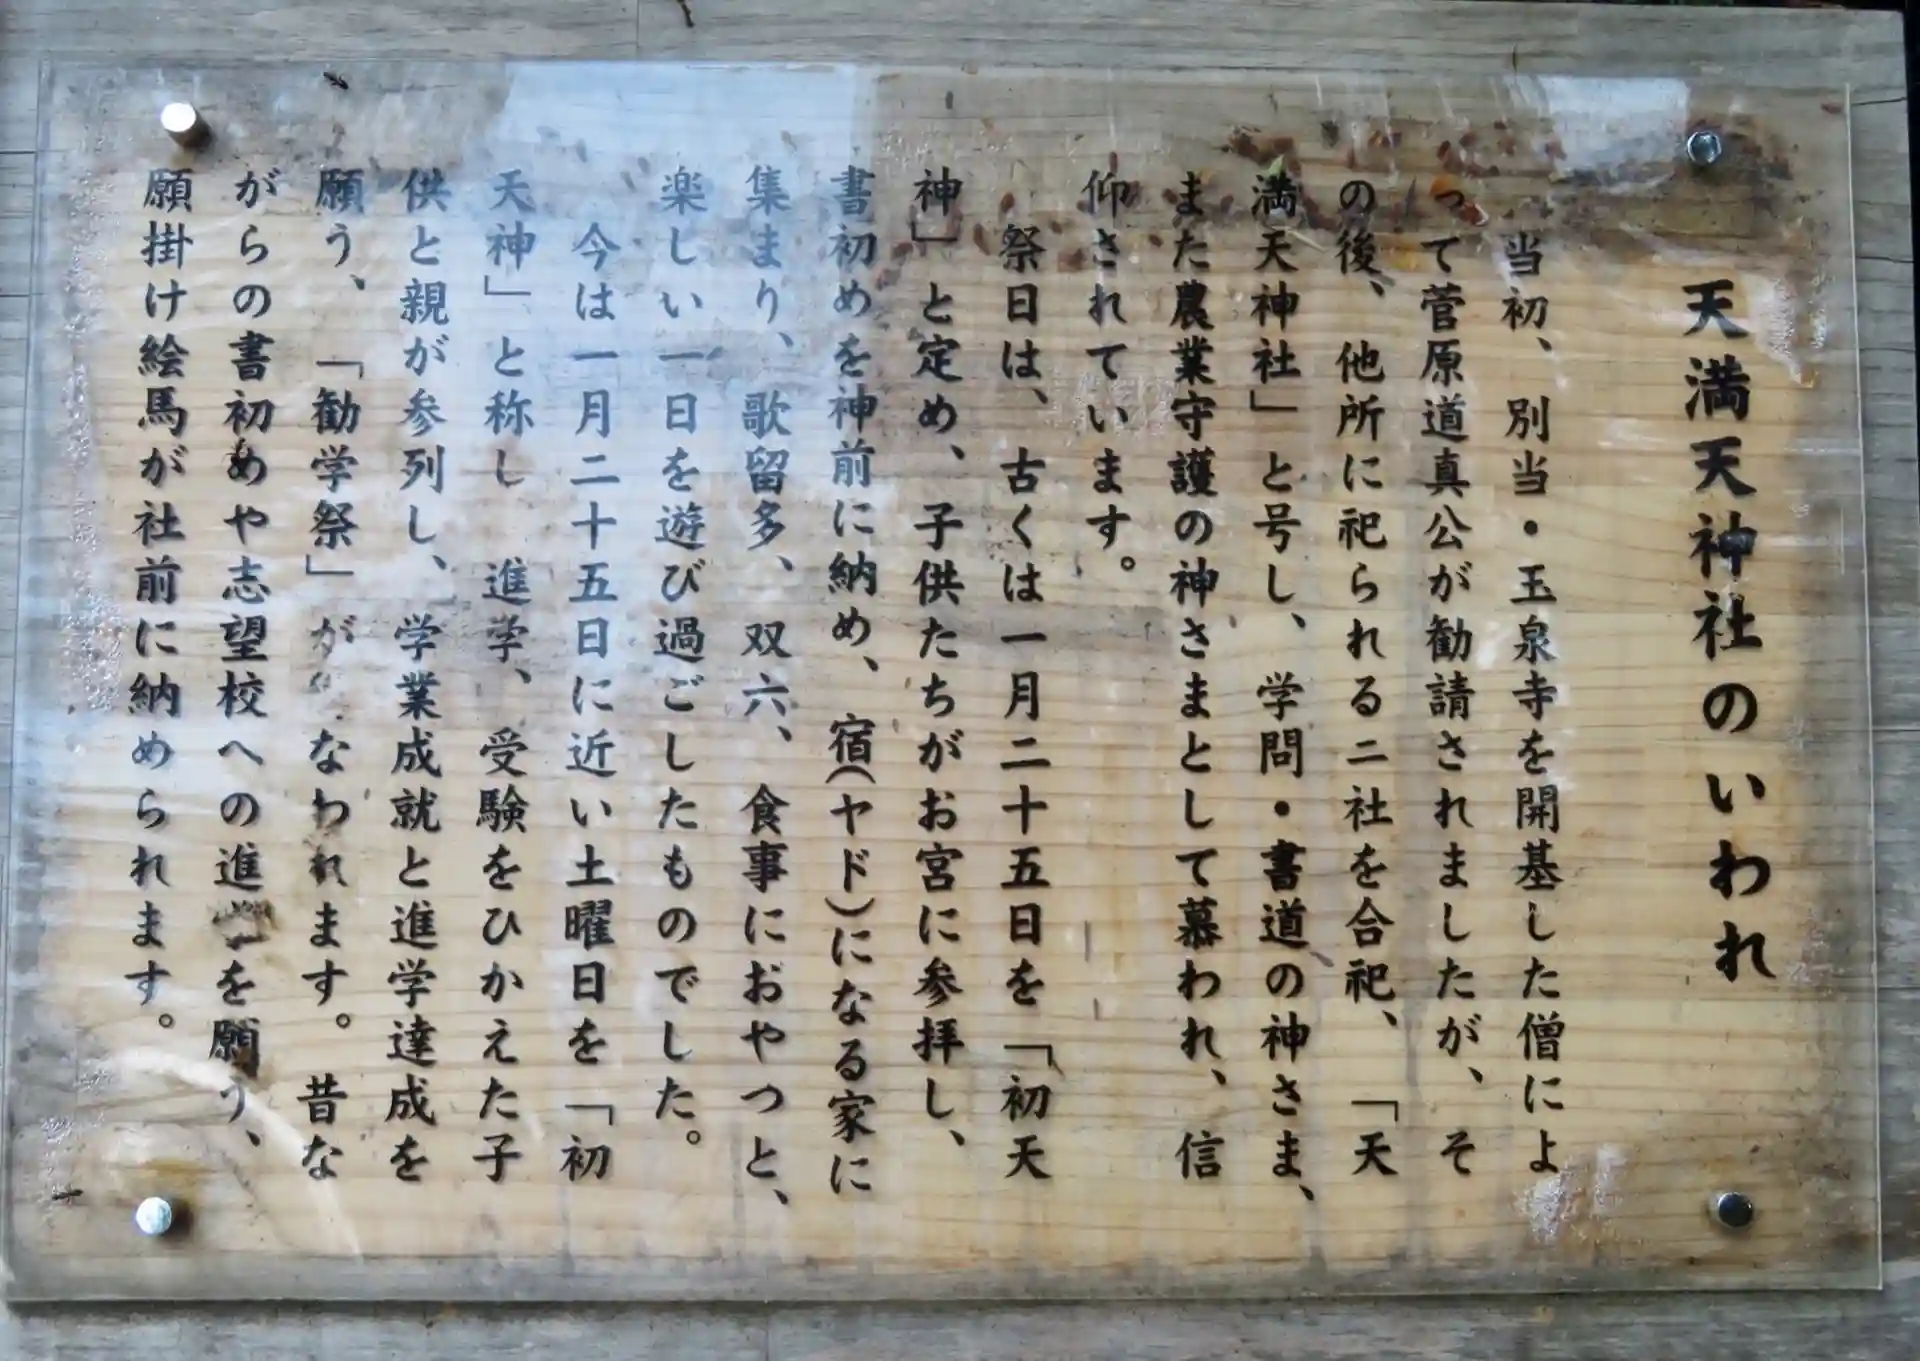 天満天神社のいわれ
当初、別当・玉泉寺を開基した僧によ
って菅原道真公が勧請されましたが、そ
の後、他所に祀られる二社を合祀、「天
満天神社」と号し、学問・書道の神さま、
また農業守護の神さまとして慕われ、信
仰されています。
祭日は、古くは一月二十五日を「初天
神」と定め、子供たちがお宮に参拝し、
書初めを神前に納め、宿(ヤド)になる家に
集まり、歌留多、双六、食事におやつと、
楽しい一日を遊び過ごしたものでした。
今は一月二十五日に近い土曜日を「初
天神」と称し 進学、受験をひかえた子
供と親が参列し、学業成就と進学達成を
願う、「勧学祭」が なわれます。昔な
がらの書初めや志望校への進 を願う、
願掛け絵馬が社前に納められます。